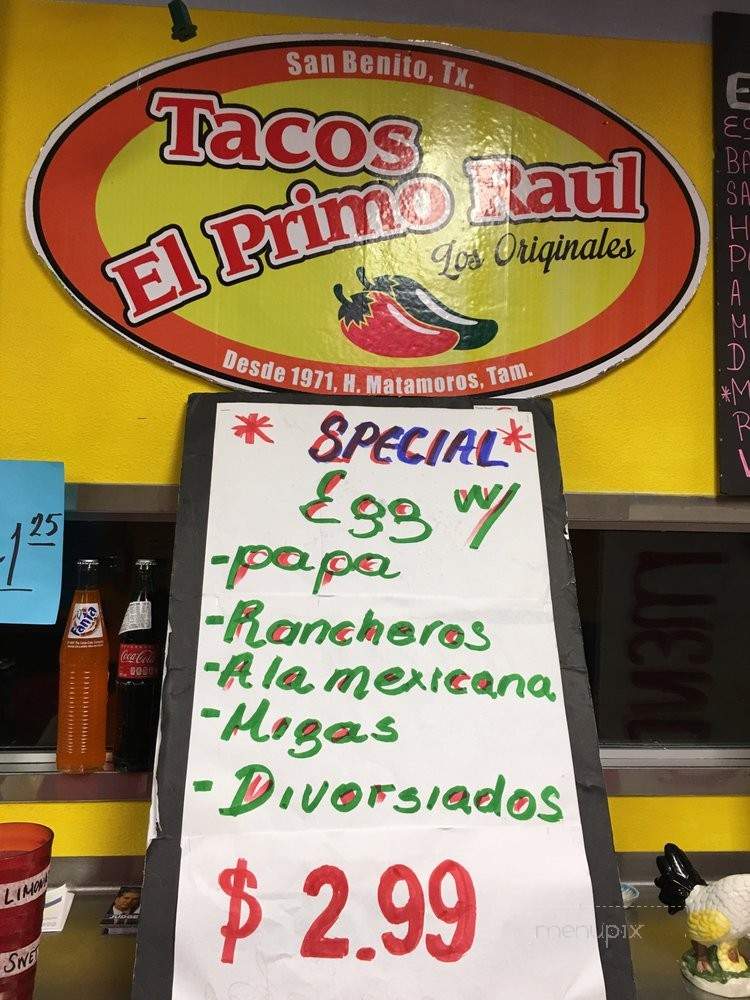 San Benito, Tx.
Tacos
El Primo Raul
Los Originales
Desde 1971, H. Matamoros, Tam.
* SPECIAL *
Egg w/
-papa
-Rancheros
-A la mexicana
-Migas
-Divorsiados
$ 2.99
1 25
Fanta
Coca-Cola
LIMON
SWE
JUDGE
E
ES
BA
SA
H
P
A
M
D
*M
R
V
menupix